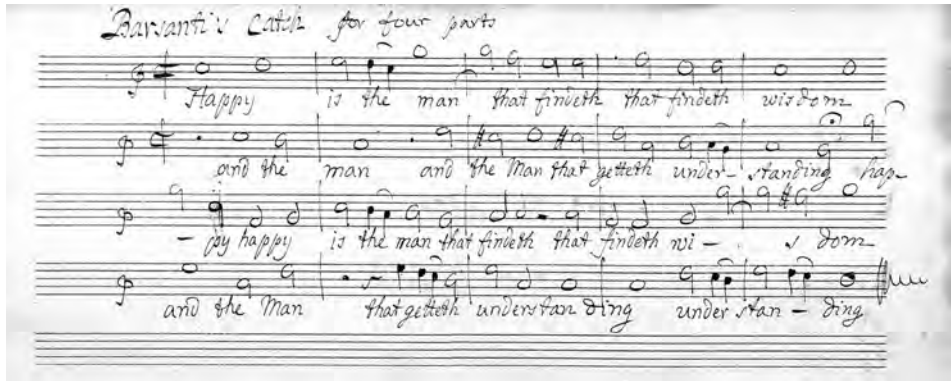 Barsanti's Catch for four parts
Happy is the man that findeth that findeth wisdom
and the man and the Man that getteth under- standing hap-
- py happy is the man that findeth that findeth wi - s dom
and the Man that getteth understan ding under stan - ding